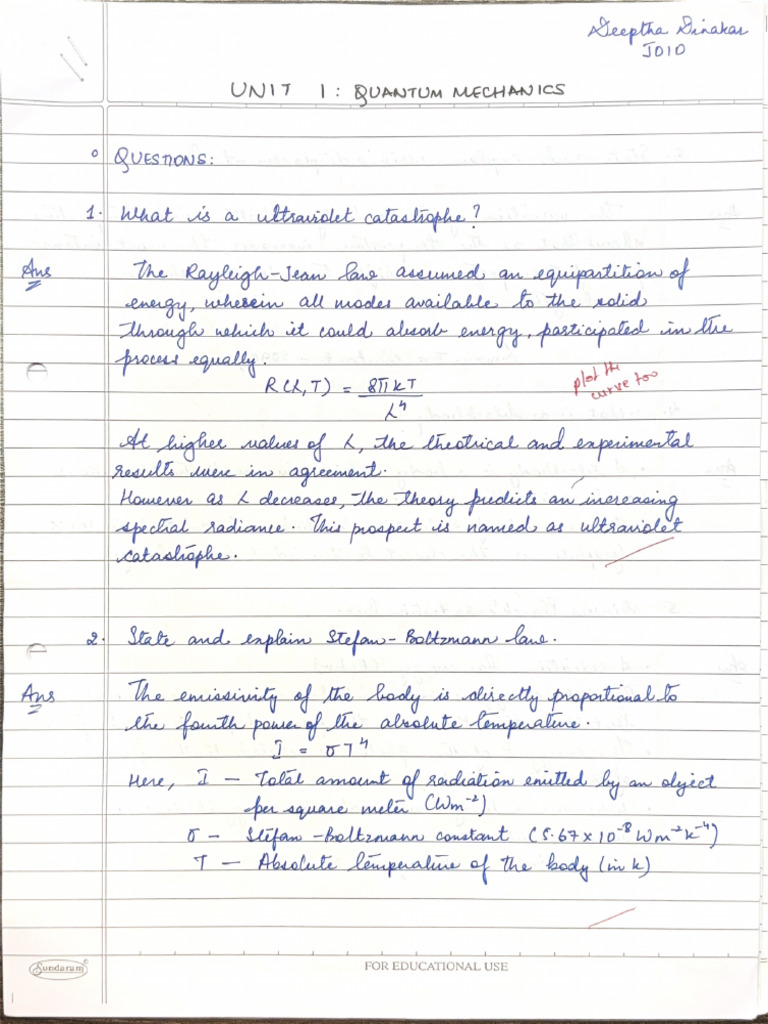 Deeptha Dinakar
J010
UNIT 1: QUANTUM MECHANICS
° QUESTIONS:
1. What is a ultraviolet catastrophe?
Ans The Rayleigh-Jean law assumed an equipartition of
energy, wherein all modes available to the solid
through which it could absorb energy, participated in the
process equally.
R(λ,T) = 8πkT
λ⁴
plot the
curve too
At higher values of λ, the theotrical and experimental
results were in agreement.
However as λ decreases, the theory predicts an increasing
spectral radiance. This prospect is named as ultraviolet
catastrophe.
2. State and explain Stefan-Boltzmann law.
Ans The emissivity of the body is directly proportional to
the fourth power of the absolute temperature.
I = σT⁴
Here, I - Total amount of radiation emitted by an object
per square meter (Wm⁻²)
σ - Stefan-Boltzmann constant (5.67x10⁻⁸Wm⁻²k⁻⁴)
T - Absolute temperature of the body (in k)
Sundaram
FOR EDUCATIONAL USE